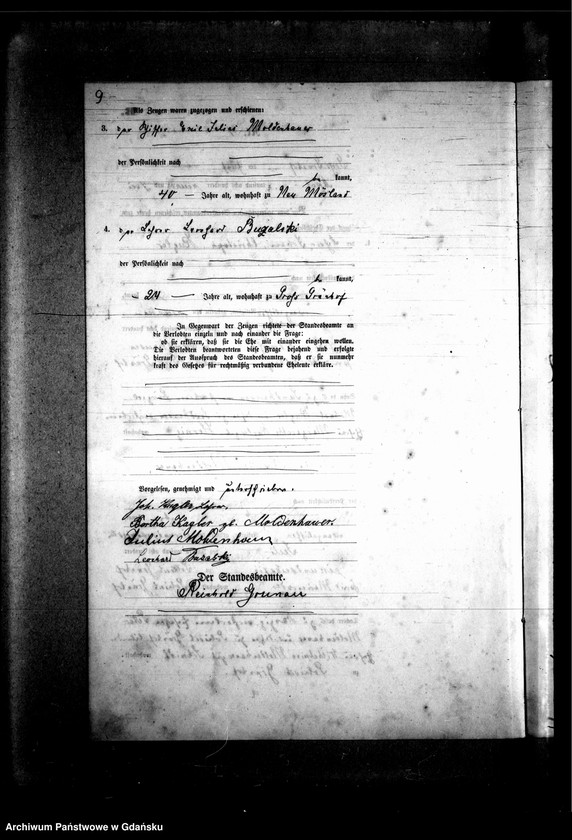 9
Als Zeugen waren zugezogen und erschienen:
3. der Emil Julius Moldenhauer
der Persönlichkeit nach
be kannt,
40 Jahre alt, wohnhaft zu Neu Mösland
4. der Leonhard Bugalski
der Persönlichkeit nach
be kannt,
24 Jahre alt, wohnhaft zu Groß Grünhof
In Gegenwart der Zeugen richtete der Standesbeamte an
die Verlobten einzeln und nach einander die Frage:
ob sie erklären, daß sie die Ehe mit einander eingehen wollen.
Die Verlobten beantworteten diese Frage bejahend und erfolgte
hierauf der Ausspruch des Standesbeamten, daß er sie nunmehr
kraft des Gesetzes für rechtmäßig verbundene Eheleute erkläre.
Vorgelesen, genehmigt und unterschrieben.
Joh. Kugler,
Bertha Kugler gb. Moldenhawer.
Julius Moldenhauer
Leonhard Bugalski
Der Standesbeamte.
Reinhold Grunau
Archiwum Państwowe w Gdańsku